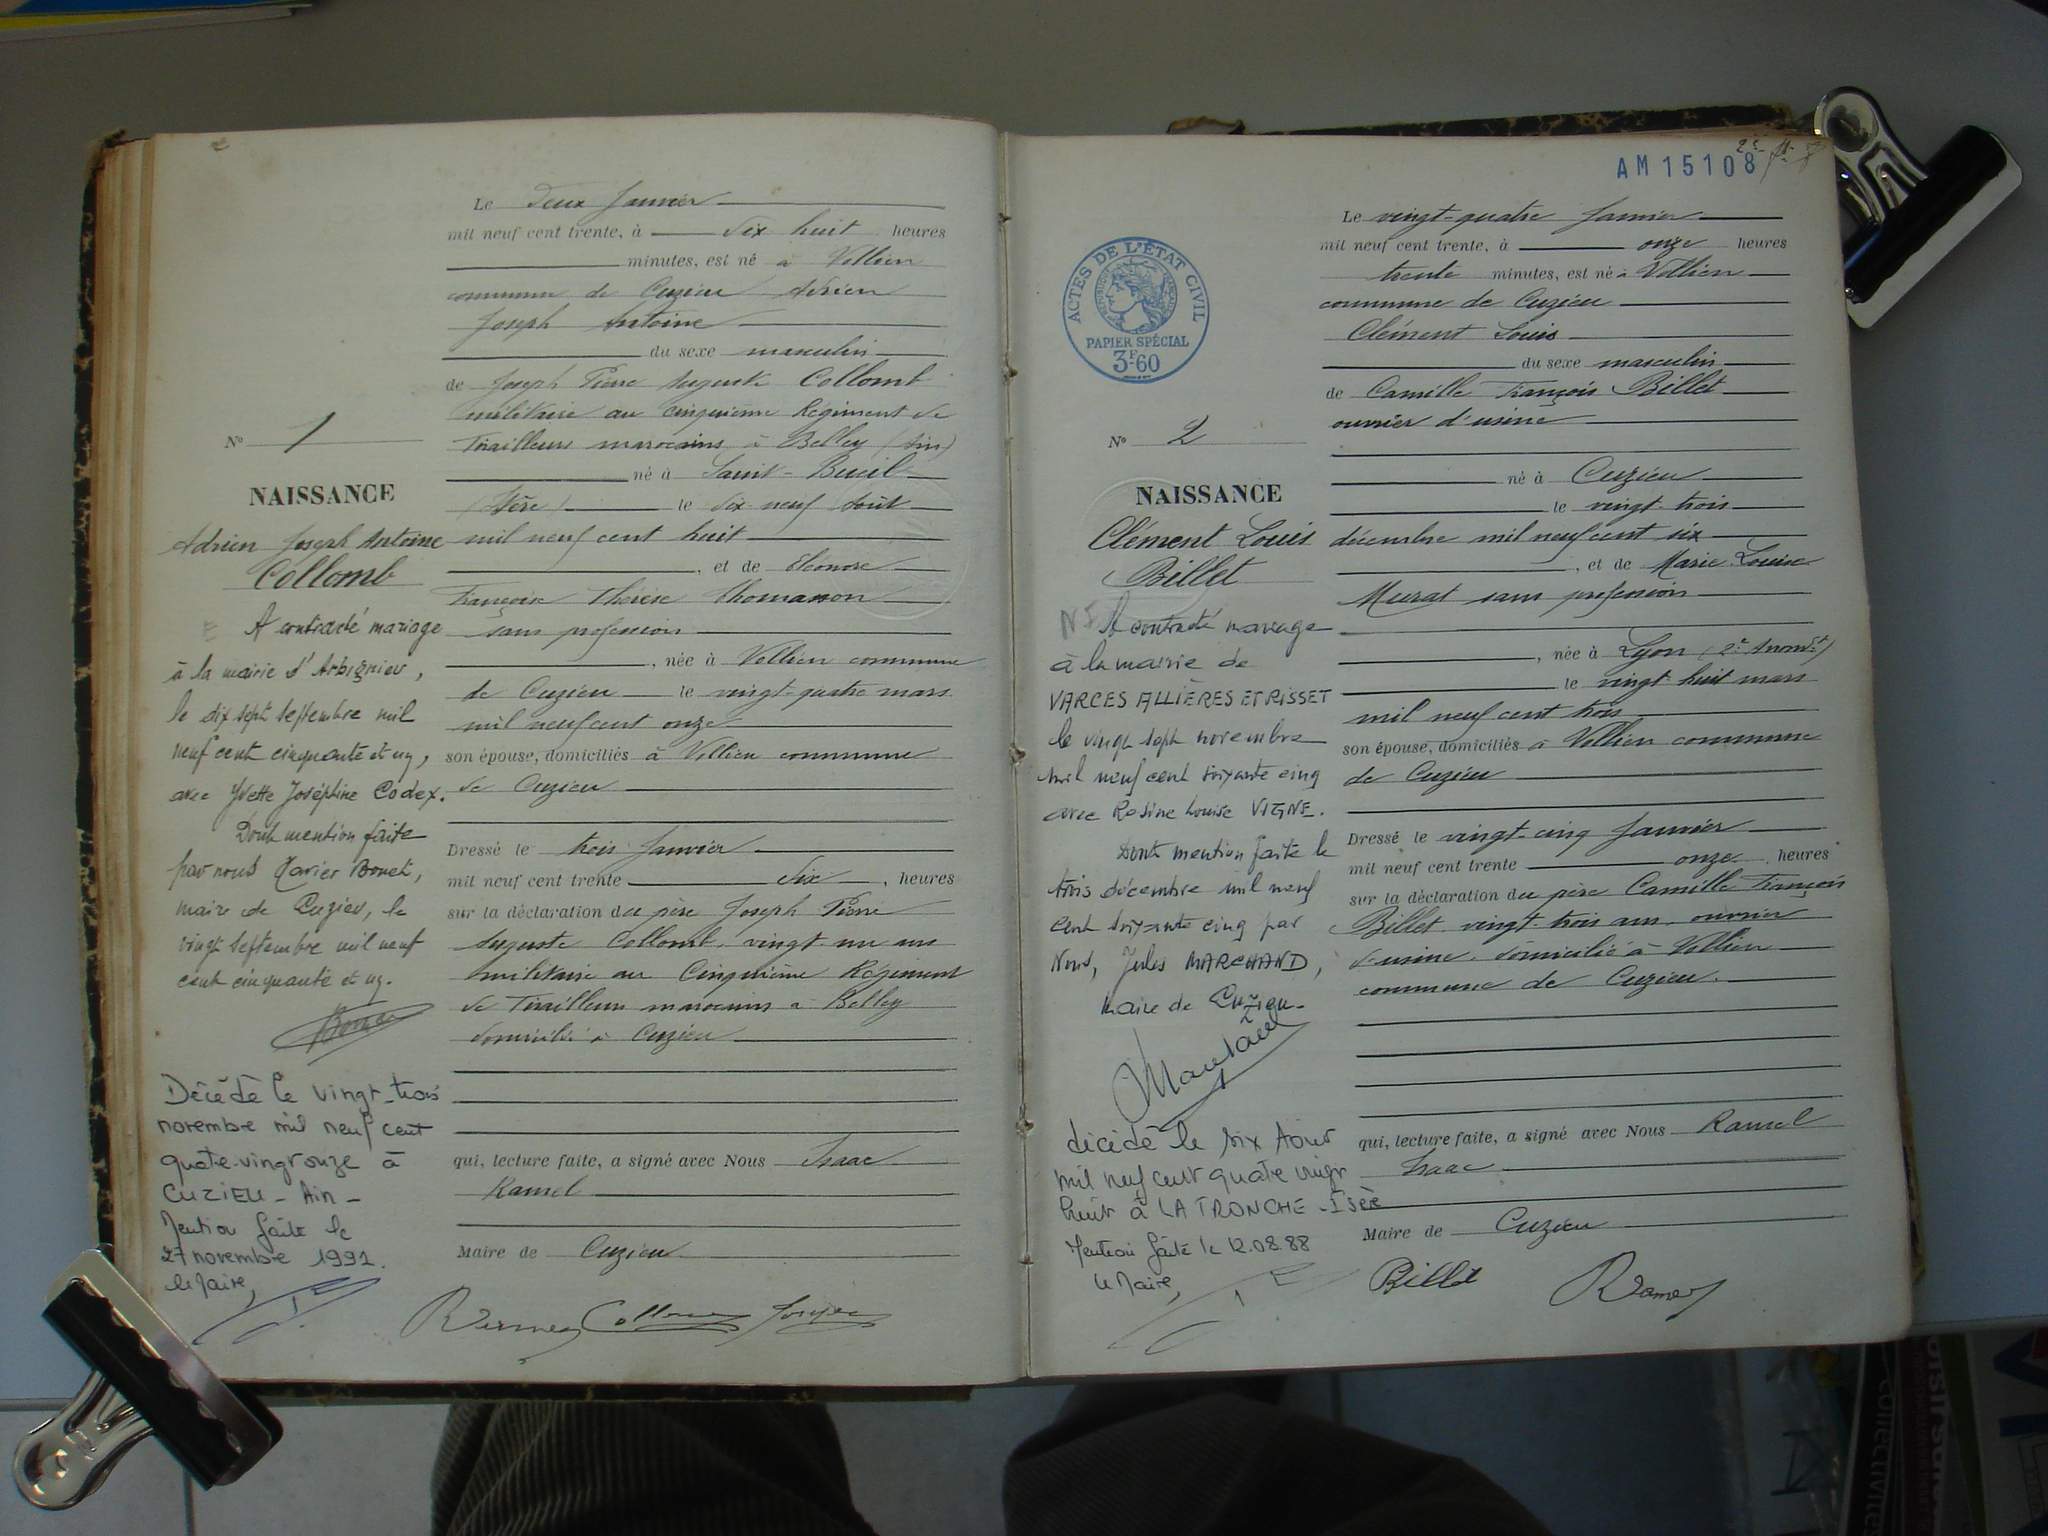 Le deux Janvier
mil neuf cent trente, à dix huit heures
minutes, est né à Vollien
commune de Cuzieu Adrien
Joseph Antoine
du sexe masculin
de Joseph Pierre Auguste Collomb
militaire au cinquième Régiment de
Tirailleurs marocains à Belley (Ain)
né à Saint-Bueil
(Isère) le dix neuf Août
mil neuf cent huit
, et de Eléonore
Françoise Thérèse Thomasson
sans profession
, née à Vollien commune
de Cuzieu le vingt-quatre mars
mil neuf cent onze
son épouse, domiciliés à Vollien commune
de Cuzieu
Dressé le trois Janvier
mil neuf cent trente dix, heures
sur la déclaration du père Joseph Pierre
Auguste Collomb, vingt-un ans
militaire au Cinquième Régiment
de Tirailleurs marocains à Belley
domicilié à Cuzieu
qui, lecture faite, a signé avec Nous Isaac
Ramel
Maire de Cuzieu
Collomb Joseph
No 1
NAISSANCE
Adrien Joseph Antoine
Collomb
A contracté mariage
à la mairie d'Arbignieu,
le dix sept septembre mil
neuf cent cinquante et un,
avec Yvette Joséphine Codex.
Dont mention faite
par nous Xavier Bonet,
maire de Cuzieu, le
vingt septembre mil neuf
cent cinquante et un.
Décédé le vingt-trois
novembre mil neuf cent
quatre-vingt onze à
CUZIEU - Ain -
Mention faite le
27 novembre 1991.
le Maire,
AM 15108
ACTES DE L'ÉTAT CIVIL
PAPIER SPÉCIAL
3F60
Le vingt-quatre Janvier
mil neuf cent trente, à onze heures
trente minutes, est né à Vollien
commune de Cuzieu
Clément Louis
du sexe masculin
de Camille François Billet
ouvrier d'usine
né à Cuzieu
le vingt-trois
décembre mil neuf cent six
, et de Marie Louise
Murat sans profession
, née à Lyon (2e Arrondt)
le vingt-huit mars
mil neuf cent trois
son épouse, domiciliés à Vollien commune
de Cuzieu
Dressé le vingt-cinq Janvier
mil neuf cent trente onze, heures
sur la déclaration du père Camille François
Billet, vingt-trois ans, ouvrier
d'usine, domicilié à Vollien
commune de Cuzieu.
qui, lecture faite, a signé avec Nous Ramel
Isaac
Maire de Cuzieu
Billet
No 2
NAISSANCE
Clément Louis
Billet
A contracté mariage
à la mairie de
VARCES ALLIÈRES ET RISSET
le vingt sept novembre
mil neuf cent soixante cinq
avec Rosine Louise VIGNE.
Dont mention faite le
trois décembre mil neuf
cent soixante cinq par
Nous, Jules MARCHAND,
maire de Cuzieu.
décédé le six Août
mil neuf cent quatre vingt
huit à LA TRONCHE - Isère
Mention faite le 12.08.88
le Maire,